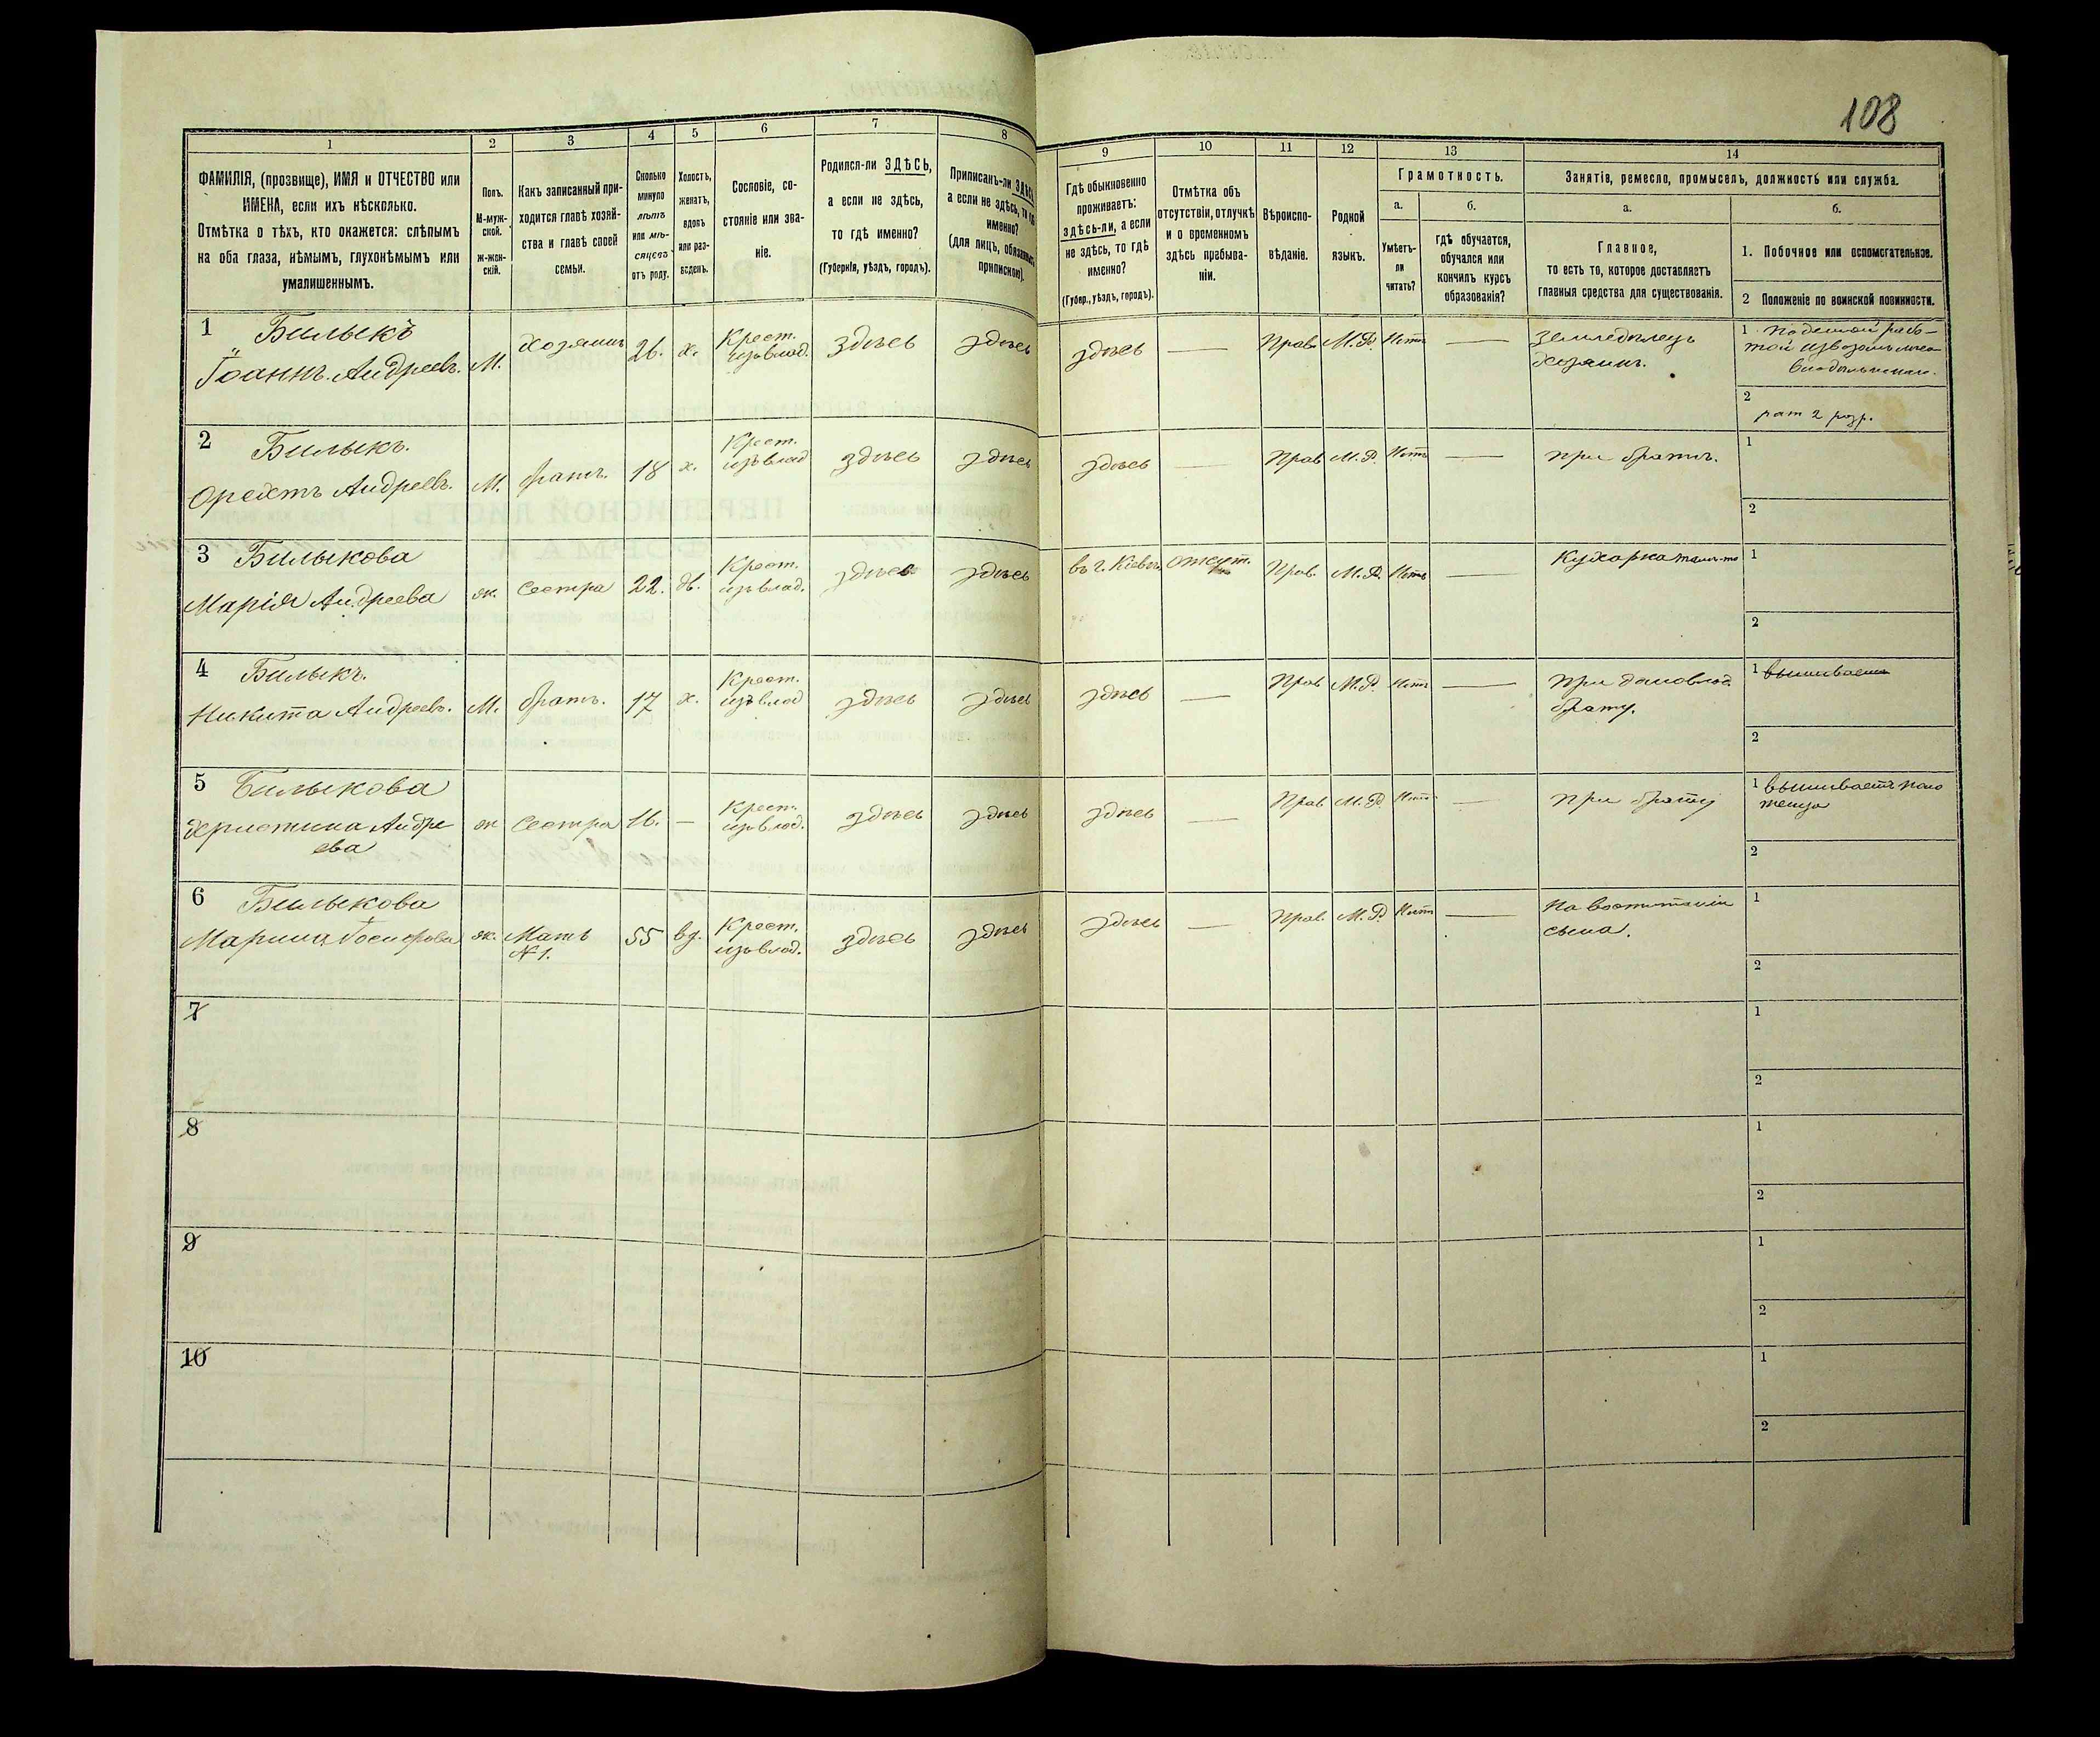 108
1
2
3
4
5
6
7
8
9
10
11
12
13
14
ФАМИЛІЯ, (прозвище), ИМЯ и ОТЧЕСТВО или
ИМЕНА, если ихъ нѣсколько.
Отмѣтка о тѣхъ, кто окажется: слѣпымъ
на оба глаза, нѣмымъ, глухонѣмымъ или
умалишеннымъ.
Полъ.
М-муж-
ской.
Ж-жен-
скій.
Какъ записанный при-
ходится главѣ хозяй-
ства и главѣ своей
семьи.
Сколько
минуло
лѣтъ
или мѣ-
сяцевъ
отъ роду.
Холостъ,
женатъ,
вдовъ
или раз-
веденъ.
Сословіе, со-
стояніе или зва-
ніе.
Родился-ли ЗДѢСЬ,
а если не здѣсь,
то гдѣ именно?
(Губернія, уѣздъ, городъ).
Приписанъ-ли ЗДѢСЬ
а если не здѣсь, то гдѣ
именно?
(для лицъ, обязанныхъ
припискою).
Гдѣ обыкновенно
проживаетъ:
здѣсь-ли, а если
не здѣсь, то гдѣ
именно?
(Губер., уѣздъ, городъ).
Отмѣтка объ
отсутствіи, отлучкѣ
и о временномъ
здѣсь пребыва-
ніи.
Вѣроиспо-
вѣданіе.
Родной
языкъ.
Грамотность.
а.
Умѣетъ-
ли
читать?
б.
гдѣ обучается,
обучался или
кончилъ курсъ
образованія?
Занятіе, ремесло, промыселъ, должность или служба.
а.
Главное,
то есть то, которое доставляетъ
главныя средства для существованія.
б.
1. Побочное или вспомогательное.
2 Положеніе по воинской повинности.
1 Билыкъ
Іоаннъ Андреевъ. М. Хозяинъ 26. х. Крест. изъ влад. здѣсь здѣсь здѣсь — Прав М.Р. Нѣтъ — Земледѣлецъ
Хозяинъ.
1
2 рат 2 разр.
2 Билыкъ.
Орестъ Андреевъ. М. братъ. 18 х. Крест. изъ влад здѣсь здѣсь здѣсь — Прав М.Р. Нѣтъ — при братѣ.
1
2
3 Билыкова
Марія Андреева ж. Сестра 22. дѣ. Крест. изъ влад. здѣсь здѣсь въ г. Кіевѣ отсут. Прав. М.Р. Нѣтъ — Кухарка
1
2
4 Билыкъ.
Никита Андреевъ. М. братъ. 17 х. Крест. изъ влад здѣсь здѣсь здѣсь — Прав М.Р. Нѣтъ — при
брату.
1 вышиваетъ
2
5 Билыкова
Христина Андре
ева ж Сестра 16. — Крест. изъ влад. здѣсь здѣсь здѣсь — Прав М.Р. Нѣтъ — при брату
1 вышиваетъ поло
тенца
2
6 Билыкова
Марина Іосифова ж. Мать
№ 1. 55 вд. Крест. изъ влад. здѣсь здѣсь здѣсь — Прав. М.Р. Нѣтъ — На воспитаніи
сына.
1
2
7
1
2
8
1
2
9
1
2
10
1
2